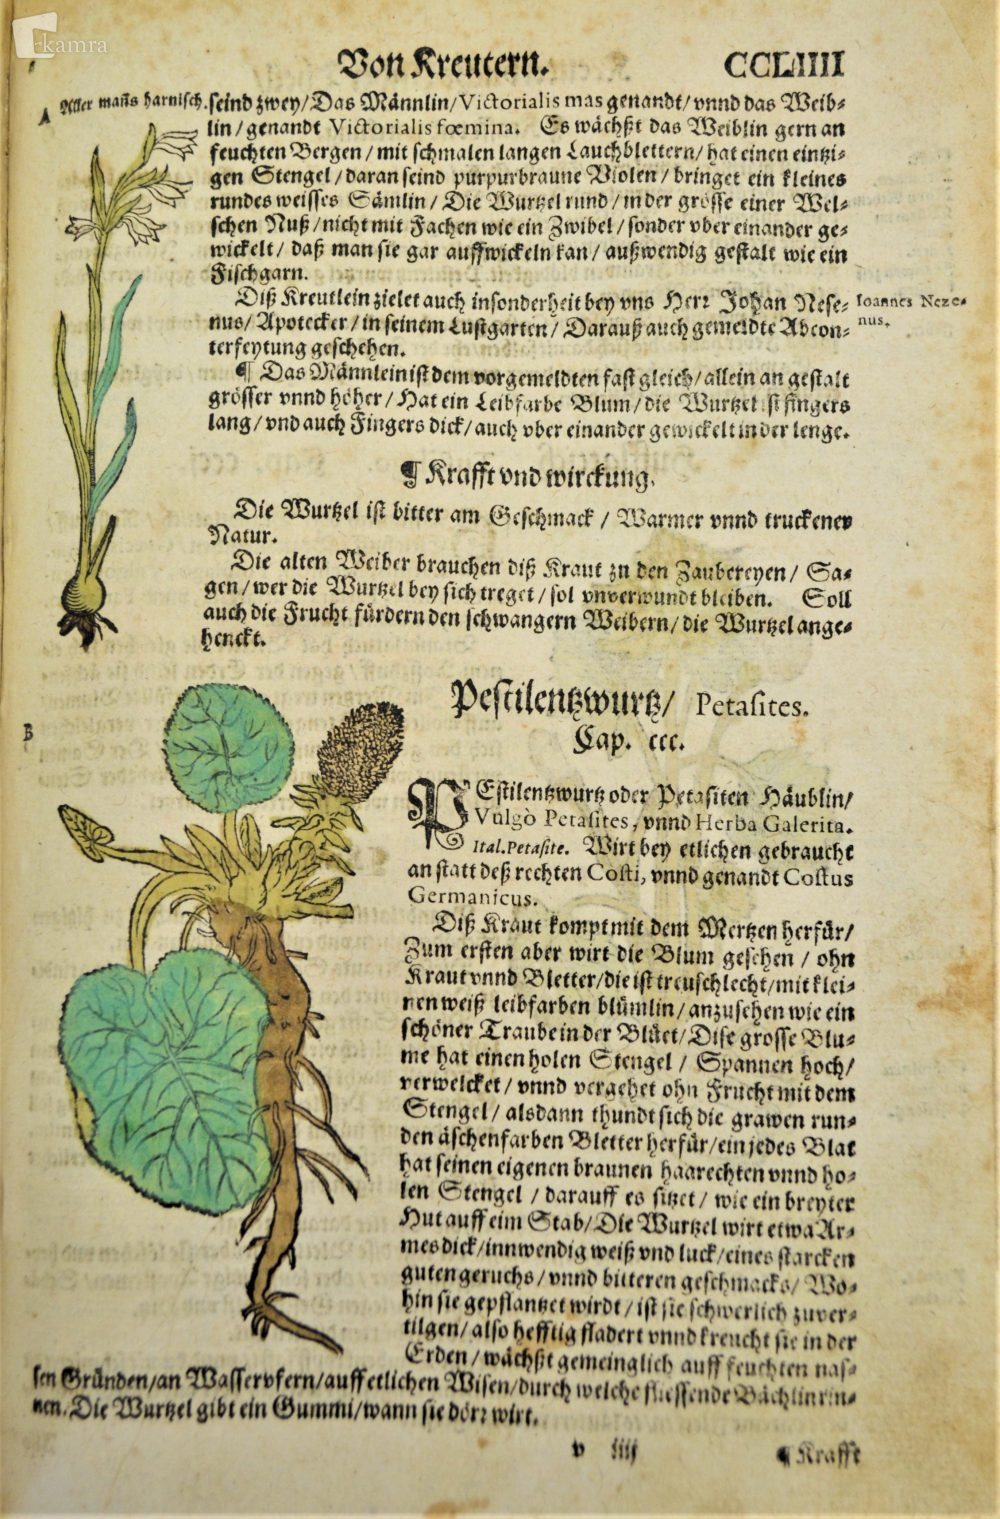 kamra
Von Kreutern. CCLIIII
A Aller mañs harnisch. seind zwey/Das Männlin/Victorialis mas genandt/vnnd das Weib-
lin/genandt Victorialis fœmina. Es wächßt das Weiblin gern an
feuchten Bergen/mit schmalen langen Lauchblettern/hat einen eintzi-
gen Stengel/daran seind purpurbraune Violen/bringet ein kleines
rundes weisses Sämlin/Die Wurtzel rund/in der grösse einer Wel-
schen Nuß/nicht mit Fachen wie ein Zwibel/sonder vber einander ge-
wickelt/daß man sie gar auffwickeln kan/außwendig gestalt wie ein
Fischgarn.
Diß Kreutlein zielet auch insonderheit bey vns Herr Johan Nese-
Ioannes Neze-
nus/Apotecker/in seinem Lustgarten/Darauß auch gemeldte Abcon-
nus.
terfeytung geschehen.
¶ Das Männlein ist dem vorgemeldten fast gleich/allein an gestalt
grösser vnnd höher/Hat ein Leibfarbe Blum/die Wurtzel ist fingers
lang/vnd auch Fingers dick/auch vber einander gewickelt in der lenge.
¶ Krafft vnd wirckung.
Die Wurtzel ist bitter am Geschmack/Warmer vnnd truckener
Natur.
Die alten Weiber brauchen diß Kraut zu den Zaubereyen/Sa-
gen/wer die Wurtzel bey sich treget/sol vnverwundt bleiben. Soll
auch die Frucht fürdern den schwangern Weibern/die Wurtzel ange-
henckt.
B
Pestilentzwurtz/ Petasites.
Cap. ccc.
PEstilentzwurtz oder Petasiten Häublin/
Vulgò Petasites, vnnd Herba Galerita.
Ital. Petasite. Wirt bey etlichen gebraucht
an statt deß rechten Costi, vnnd genandt Costus
Germanicus.
Diß Kraut kompt mit dem Mertzen herfür/
Zum ersten aber wirt die Blum gesehen/ohn
Kraut vnnd Bletter/die ist treuschlecht/mit klei-
nen weiß leibfarben blümlin/anzusehen wie ein
schöner Traube in der Blüet/Dise grosse Blu-
me hat einen holen Stengel/Spannen hoch/
verwelcket/vnnd vergehet ohn Frucht mit dem
Stengel/alsdann thundt sich die grawen run-
den äschenfarben Bletter herfür/ein jedes Blat
hat seinen eigenen braunen haarechten vnnd ho-
len Stengel/darauff es sitzet/wie ein breyter
Hut auff eim Stab/Die Wurtzel wirt etwa Ar-
mes dick/innwendig weiß vnd luck/eines starcken
guten geruchs/vnnd bitteren geschmacks/Wo-
hin sie gepflantzet wirdt/ist sie schwerlich zuver-
tilgen/also hefftig fladert vnnd kreucht sie in der
Erden/wächßt gemeinglich auff feuchten nas-
sen Gründen/an Wasservfern/auff etlichen Wisen/durch welche fliessende Bächlin rin-
nen. Die Wurtzel gibt ein Gummi/wann sie dörr wirt.
v iiij
¶ Krafft